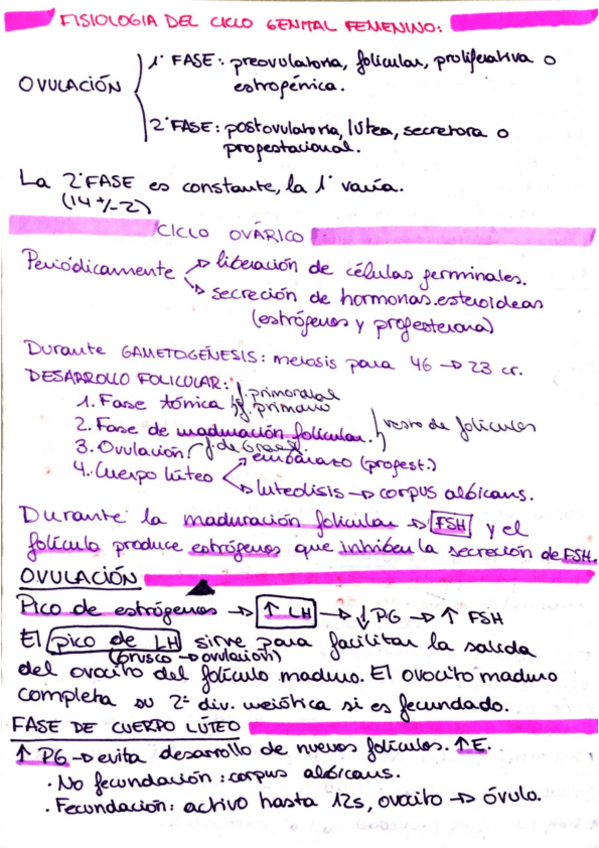 FISIOLOGIA DEL CICLO GENITAL FEMENINO:
OVULACIÓN
1ª FASE: preovulatoria, folicular, proliferativa o
estrogénica.
2ª FASE: postovulatoria, lútea, secretora o
progestacional.
La 2ª FASE es constante, la 1ª varía.
(14 +/- 2)
CICLO OVÁRICO
Periódicamente → liberación de células germinales.
→ secreción de hormonas esteroideas
(estrógenos y progesterona)
Durante GAMETOGÉNESIS: meiosis para 46 → 23 cr.
DESARROLLO FOLICULAR:
1. Fase tónica f. primordial
f. primario
2. Fase de maduración folicular. resto de folículos
3. Ovulación f. de Graaf.
4. Cuerpo lúteo → embarazo (progest.)
→ luteolisis → corpus albicans.
Durante la maduración folicular → FSH y el
folículo produce estrógenos que inhiben la secreción de FSH.
OVULACIÓN
Pico de estrógenos → ↑ LH → ↓ PG → ↑ FSH
El pico de LH sirve para facilitar la salida
(brusco → ovulación)
del ovocito del folículo maduro. El ovocito maduro
completa su 2ª div. meiótica si es fecundado.
FASE DE CUERPO LÚTEO
↑ PG → evita desarrollo de nuevos folículos. ↑ E.
· No fecundación: corpus albicans.
· Fecundación: activo hasta 12s, ovocito → óvulo.